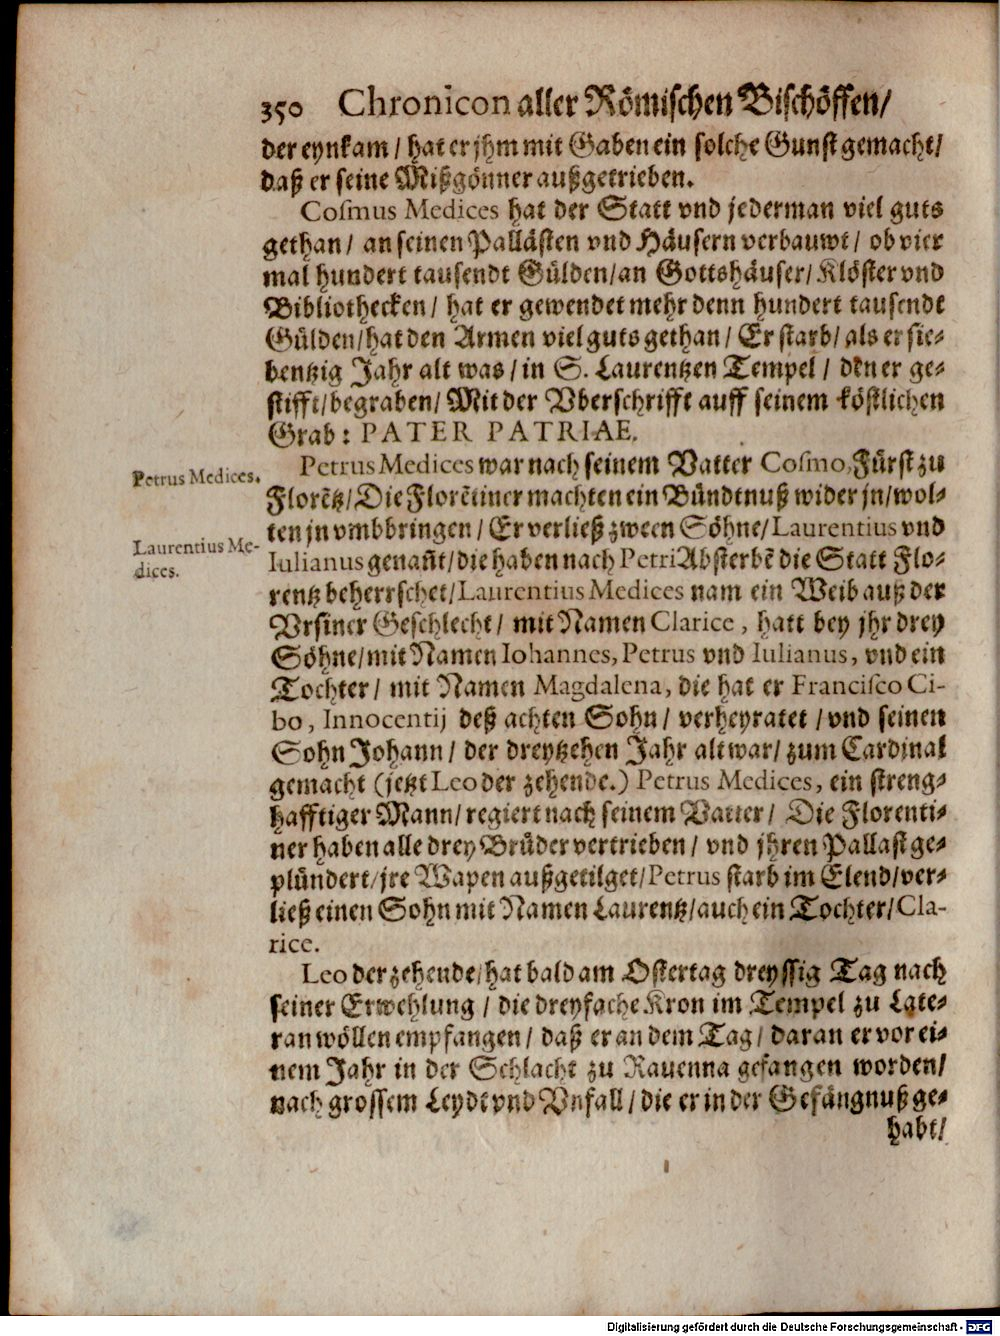 350 Chronicon aller Römischen Bischöffen/
der eynkam / hat er jhm mit Gaben ein solche Gunst gemacht/
daß er seine Mißgönner außgetrieben.
Cosmus Medices hat der Statt vnd jederman viel guts
gethan / an seinen Pallästen vnd Häusern verbauwt / ob vier
mal hundert tausendt Gülden / an Gottshäuser / Klöster vnd
Bibliothecken / hat er gewendet mehr denn hundert tausendt
Gülden / hat den Armen viel guts gethan / Er starb / als er sie-
bentzig Jahr alt was / in S. Laurentzen Tempel / den er ge-
stifft / begraben / Mit der Vberschrifft auff seinem köstlichen
Grab: PATER PATRIAE.
Petrus Medices.
Petrus Medices war nach seinem Vatter Cosmo, Fürst zu
Florẽtz / Die Florẽtiner machten ein Bündtnuß wider jn / wol-
ten jn vmbbringen / Er verließ zween Söhne / Laurentius vnd
Laurentius Me-
dices.
Iulianus genañt / die haben nach Petri Absterbẽ die Statt Flo-
rentz beherrschet / Laurentius Medices nam ein Weib auß der
Vrsiner Geschlecht / mit Namen Clarice, hatt bey jhr drey
Söhne / mit Namen Iohannes, Petrus vnd Iulianus, vnd ein
Tochter / mit Namen Magdalena, die hat er Francisco Ci-
bo, Innocentij deß achten Sohn / verheyratet / vnd seinen
Sohn Johann / der dreytzehen Jahr alt war / zum Cardinal
gemacht (jetzt Leo der zehende.) Petrus Medices, ein streng-
hafftiger Mann / regiert nach seinem Vatter / Die Florenti-
ner haben alle drey Brüder vertrieben / vnd jhren Pallast ge-
plündert / jre Wapen außgetilget / Petrus starb im Elend / ver-
ließ einen Sohn mit Namen Laurentz / auch ein Tochter / Cla-
rice.
Leo der zehende / hat bald am Ostertag dreyssig Tag nach
seiner Erwehlung / die dreyfache Kron im Tempel zu Late-
ran wöllen empfangen / daß er an dem Tag / daran er vor ei-
nem Jahr in der Schlacht zu Rauenna gefangen worden /
nach grossem Leydt vnd Vnfall / die er in der Gefängnuß ge-
habt /
Digitalisierung gefördert durch die Deutsche Forschungsgemeinschaft - DFG